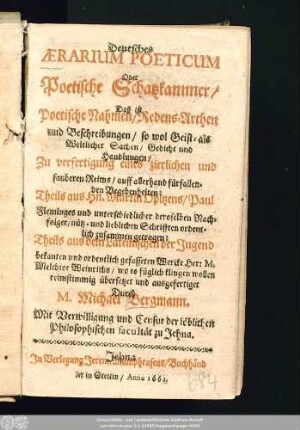 Deutsches
ÆRARIUM POETICUM
Oder
Poetische Schatzkammer/
Daß ist
Poetische Nahmen/ Redens-Arthen
und Beschreibungen/ so wol Geist- als
Weltlicher Sachen/ Gedicht und
Handlungen/
Zu verfertigung eines zierlichen und
sauberen Reims/ auff allerhand fürfallen-
den Begebenheiten:
Theils aus Hn. Martin Opitzens/ Paul
Flemings und unterschiedlicher deroselben Nach-
folger/ nütz- und lieblichen Schrifften ordent-
lich zusammen getragen:
Theils aus dem Lateinischen der Jugend
bekanten und ordentlich gefasseten Wercke Her: M.
Melchior Weinrichs/ wo es füglich klingen wollen
reimstimmig übersetzet und ausgefertiget
Durch
M. Michael Bergmann.
Mit Verwilligung und Censur der löblichen
Philosophischen facultät zu Jehna.
Jehna
In Verlegung Jerem: Mamphrasens/ Buchhänd
ler in Stettin/ Anno 1662.
684